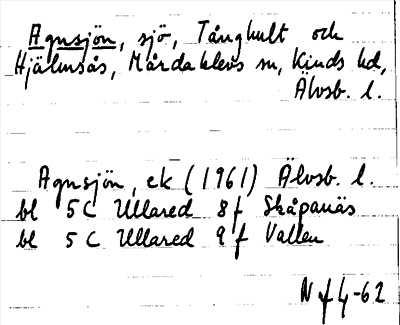 Agnsjön, sjö, Tånghult och
Hjälmsås, Mårdaklevs sn, Kinds hd,
Älvsb. l.
Agnsjön, ek (1961) Älvsb. l.
bl 5C Ullared 8f Skåpanäs
bl 5C Ullared 9f Vallen
N f 4-62